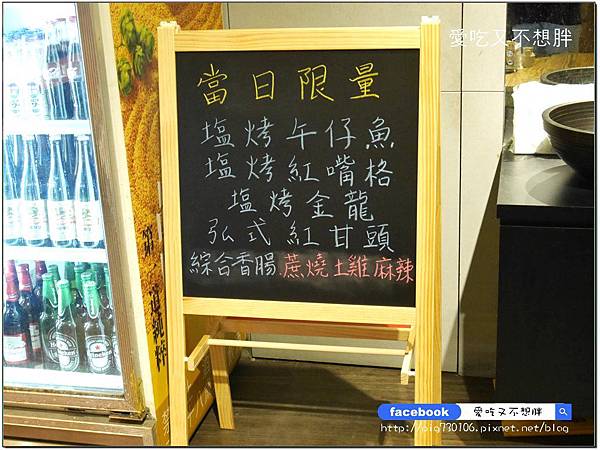 愛吃又不想胖
當日限量
塩烤午仔魚
塩烤紅嘴格
塩烤金龍
弘式紅甘頭
綜合香腸.蔗燒土雞麻辣
第一道純粹
facebook 愛吃又不想胖
http://pig730106.pixnet.net/blog